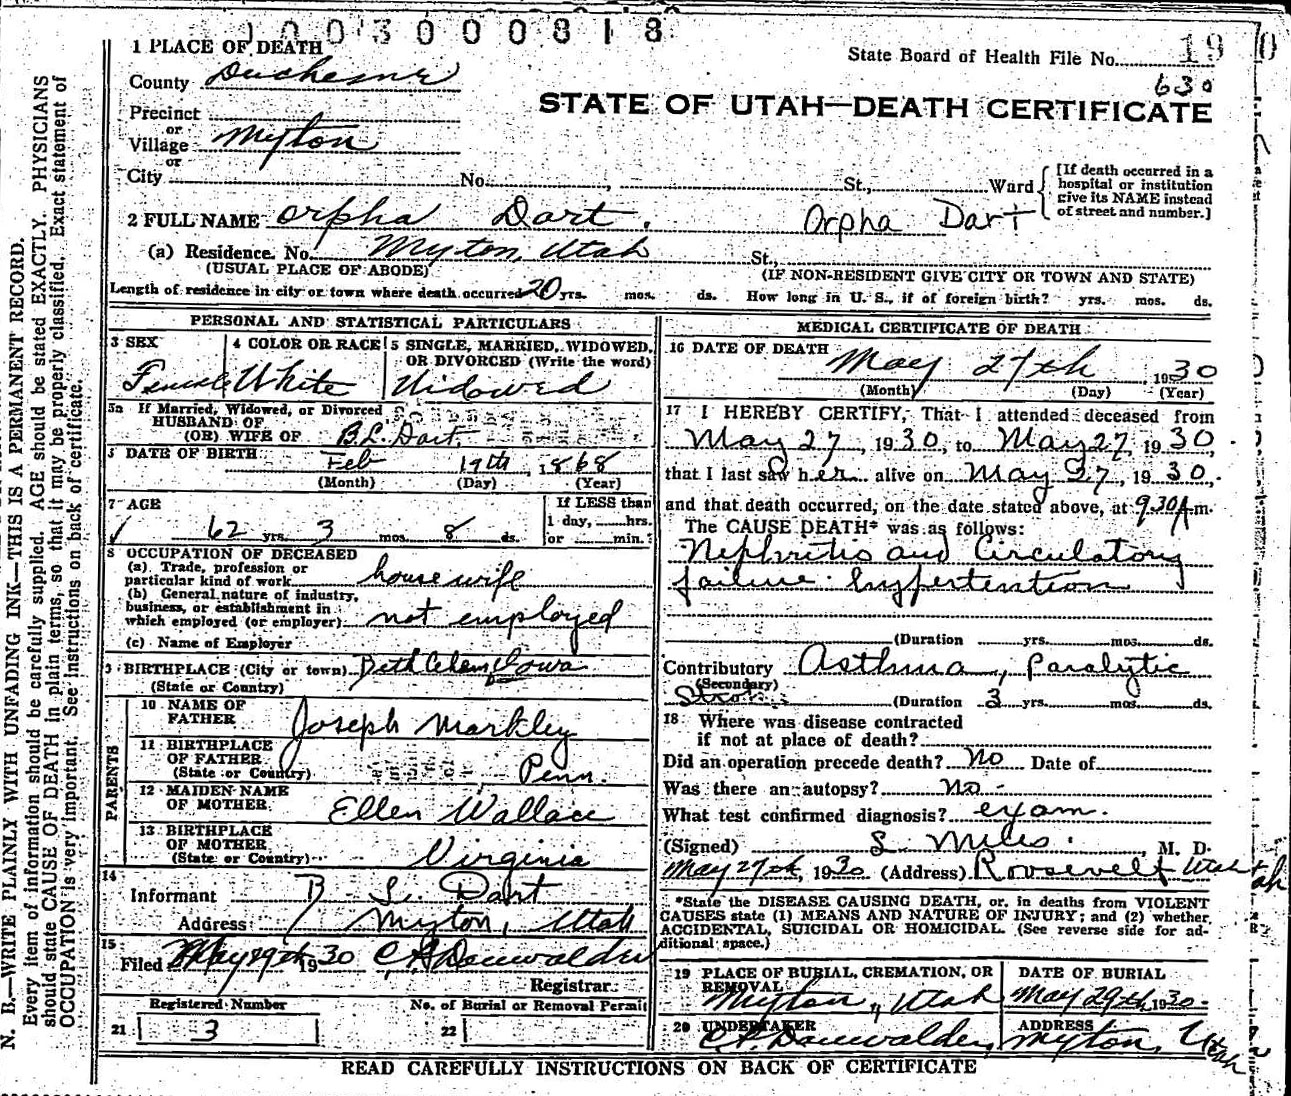 1003000818
1 PLACE OF DEATH
State Board of Health File No. 19 0
County Duchesne
630
STATE OF UTAH—DEATH CERTIFICATE
Precinct
or
Village Myton
or
City No. , St., Ward
[If death occurred in a hospital or institution give its NAME instead of street and number.]
2 FULL NAME Orpha Dart. Orpha Dart
(a) Residence. No. Myton, Utah St.,
(USUAL PLACE OF ABODE) (IF NON-RESIDENT GIVE CITY OR TOWN AND STATE)
Length of residence in city or town where death occurred 20 yrs. mos. ds. How long in U. S., if of foreign birth? yrs. mos. ds.
PERSONAL AND STATISTICAL PARTICULARS
3 SEX Female
4 COLOR OR RACE White
5 SINGLE, MARRIED, WIDOWED, OR DIVORCED (Write the word) Widowed
5a If Married, Widowed, or Divorced
HUSBAND OF
(OR) WIFE OF B.L. Dart
DATE OF BIRTH Feb 19th, 1868
(Month) (Day) (Year)
7 AGE
62 yrs. 3 mos. 8 ds.
If LESS than
1 day, hrs.
or min.?
8 OCCUPATION OF DECEASED
(a) Trade, profession or
particular kind of work housewife
(b) General nature of industry,
business, or establishment in
which employed (or employer) not employed
(c) Name of Employer
9 BIRTHPLACE (City or town) Iowa
(State or Country)
PARENTS
10 NAME OF
FATHER Joseph Markley
11 BIRTHPLACE
OF FATHER
(State or Country) Penn.
12 MAIDEN NAME
OF MOTHER Ellen Wallace
13 BIRTHPLACE
OF MOTHER
(State or Country) Virginia
14
Informant B L. Dart
Address Myton, Utah
15
Filed May 29th 1930 C. P. Dauwalder
Registrar
Registered Number
21 3
No. of Burial or Removal Permit
22
MEDICAL CERTIFICATE OF DEATH
16 DATE OF DEATH May 27th, 1930
(Month) (Day) (Year)
17 I HEREBY CERTIFY, That I attended deceased from
May 27, 1930, to May 27, 1930
that I last saw her alive on May 27, 1930,
and that death occurred, on the date stated above, at 9.30 A m.
The CAUSE DEATH* was as follows:
Nephritis and Circulatory
failure. hypertention
(Duration yrs. mos. ds.
Contributory Asthma, Paralytic
(Secondary)
Stroke (Duration 3 yrs. mos. ds.
18 Where was disease contracted
if not at place of death?
Did an operation precede death? No Date of
Was there an autopsy? no.
What test confirmed diagnosis? exam.
(Signed) L Miles, M. D.
May 27th, 1930 (Address) Roosevelt Utah
*State the DISEASE CAUSING DEATH, or, in deaths from VIOLENT
CAUSES state (1) MEANS AND NATURE OF INJURY; and (2) whether
ACCIDENTAL, SUICIDAL OR HOMICIDAL. (See reverse side for ad-
ditional space.)
19 PLACE OF BURIAL, CREMATION, OR
REMOVAL
Myton, Utah
DATE OF BURIAL
May 29th, 1930
20 UNDERTAKER
C. P. Dauwalder,
ADDRESS
Myton, Utah
READ CAREFULLY INSTRUCTIONS ON BACK OF CERTIFICATE
N. B.—WRITE PLAINLY WITH UNFADING INK—THIS IS A PERMANENT RECORD.
Every item of information should be carefully supplied. AGE should be stated EXACTLY. PHYSICIANS
should state CAUSE OF DEATH in plain terms, so that it may be properly classified. Exact statement of
OCCUPATION is very important. See instructions on back of certificate.